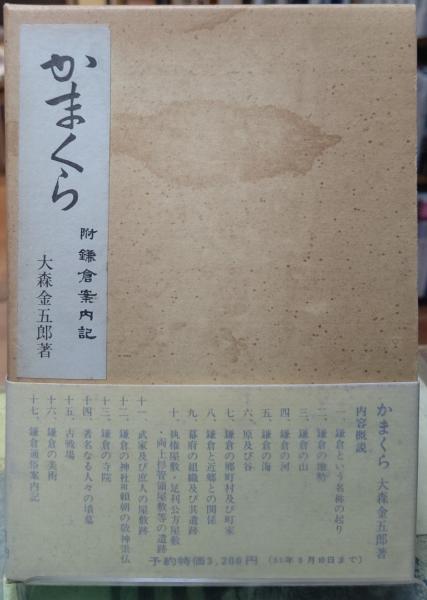 かまくら
附 鎌倉案内記
大森金五郎著
かまくら 大森金五郎著
内容概説
一、鎌倉という名称の起り
二、鎌倉の地勢
三、鎌倉の山
四、鎌倉の河
五、鎌倉の海
六、原及び谷
七、鎌倉の郷町村及び町家
八、鎌倉と近郷との関係
九、幕府の組織及び其遺跡
十、執権屋敷・足利公方屋敷
・両上杉管領屋敷等の遺跡
十一、武家及び庶人の屋敷跡
十二、鎌倉の神社 頼朝の敬神崇仏
十三、鎌倉の寺院
十四、著名なる人々の墳墓
十五、古戦場
十六、鎌倉の美術
十七、鎌倉通俗案内記
予約特価3,200円